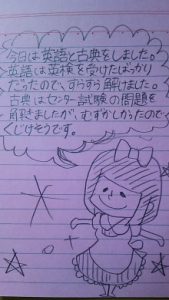 今日は英語と古典をしました。
英語は英検を受けたばっかり
だったので、すらすら解けました。
古典はセンター試験の問題を
解きましたが、むずかしかったので
くじけそうです。